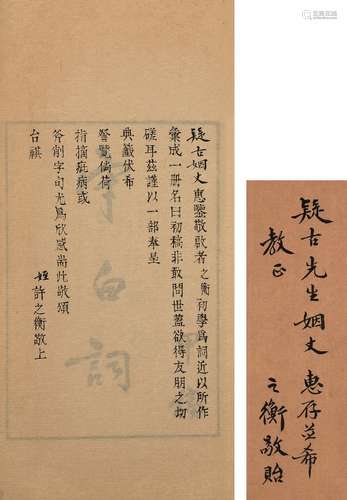 疑古姻丈惠鑒敬啟者之衡初學爲詞近以所作
彙成一冊名曰初稿非敢問世蓋欲得友朋之切
磋耳茲謹以一部奉呈
典籤伏希
督覽倘荷
指摘疵病或
斧削字句尤爲欣感耑此敬頌
台祺
姪許之衡敬上
守白詞
疑古先生姻丈惠存並希
教正
之衡敬貽